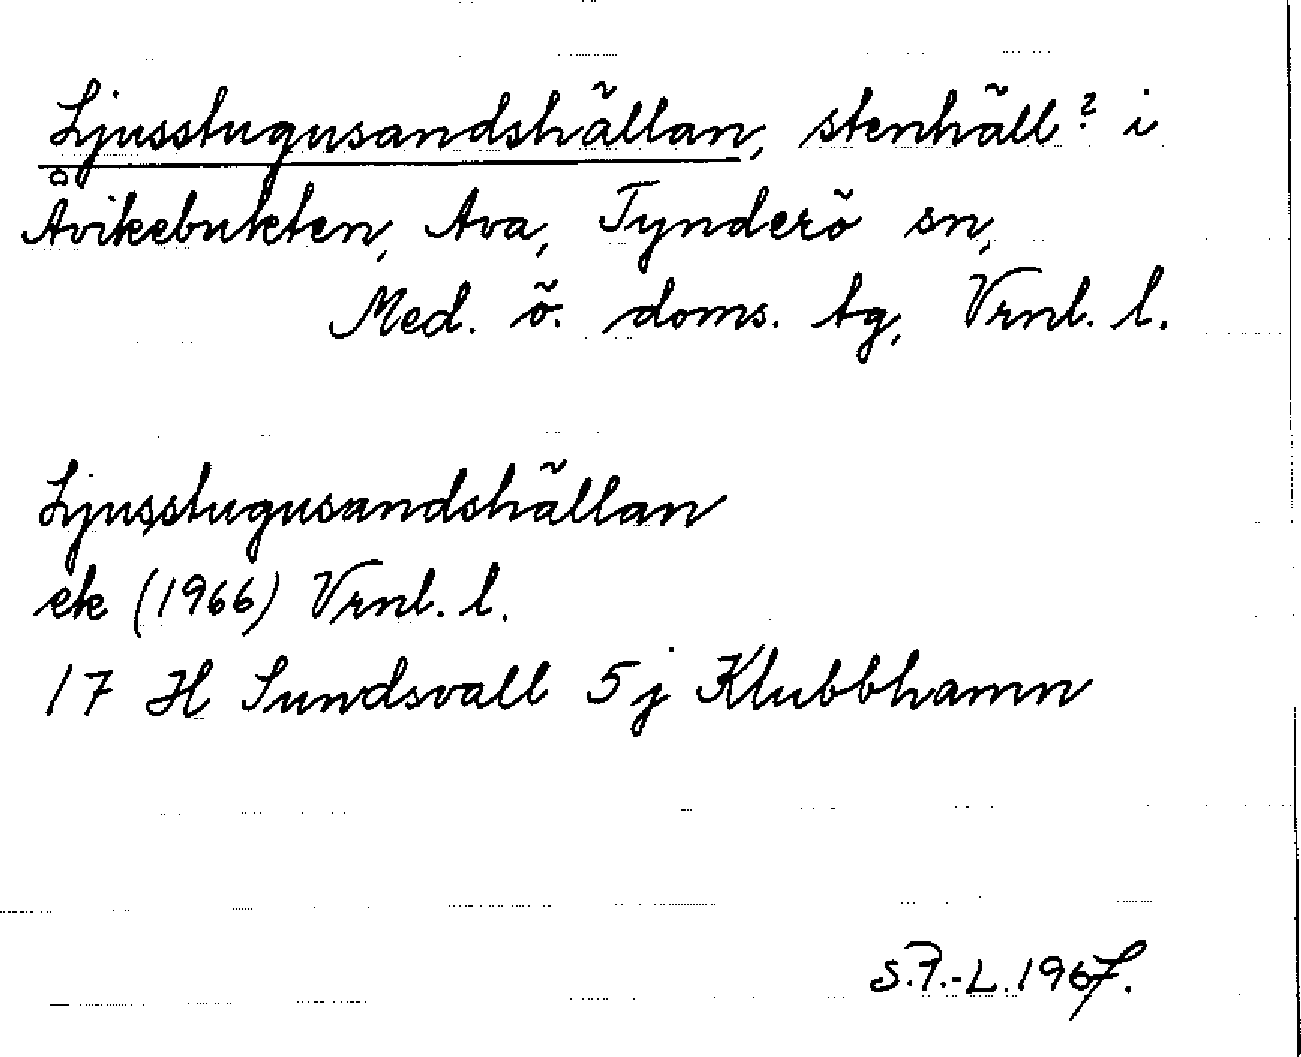 Ljusstugusandshällan, stenhäll? i
Åvikebukten, Ava, Tynderö sn,
Med. ö. doms. tg, Vrnl. l.
Ljusstugusandshällan
ek (1966) Vrnl. l.
17 H Sundsvall 5j Klubbhamn
S.P.-L. 1967.